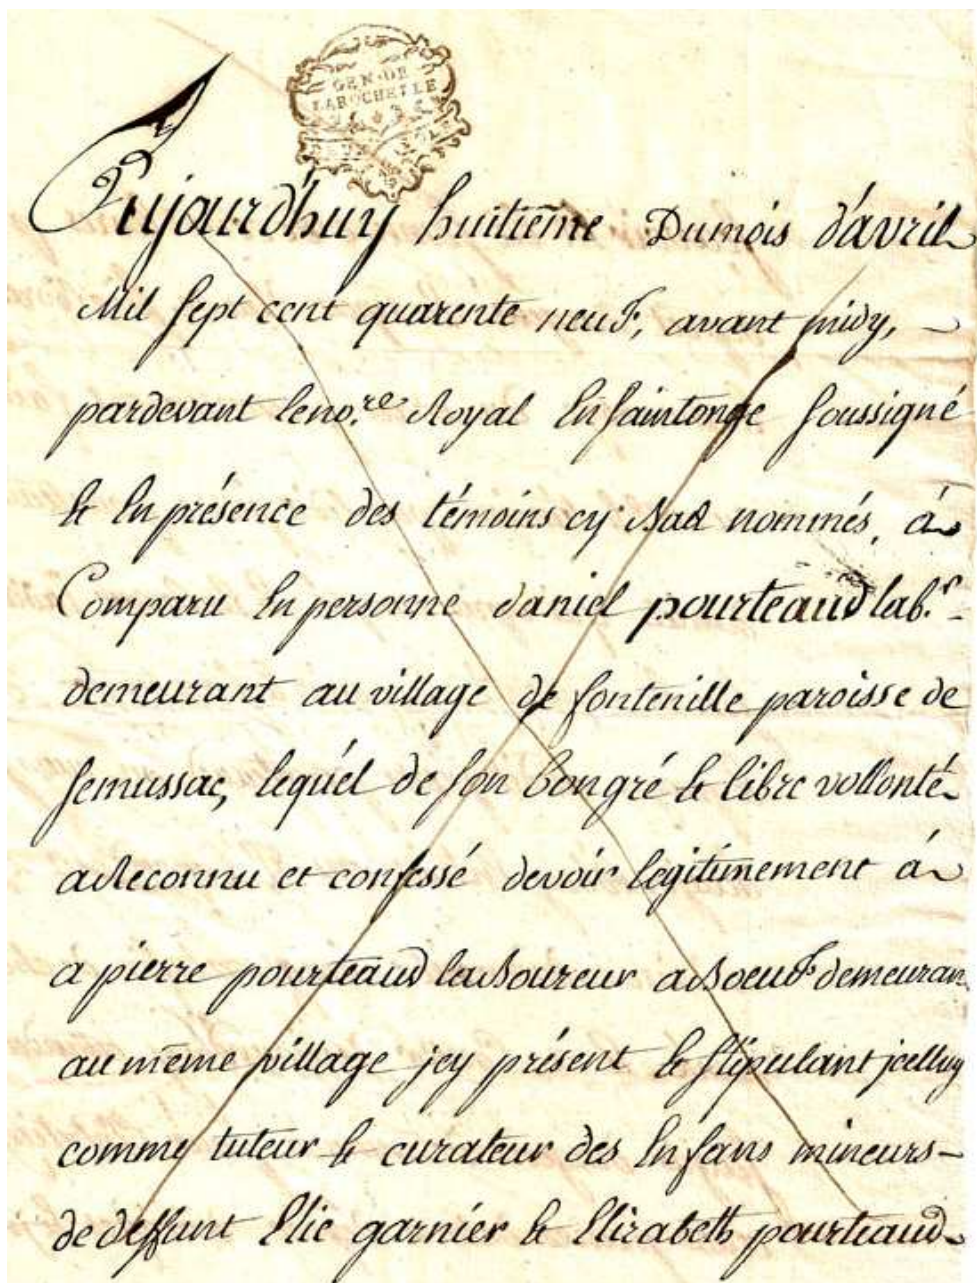 GEN·DE
LAROCHELLE
Aujourd'huy huitième Dumois d'avril
Mil sept cent quarente neuf, avant midy,
pardevant leno.re Royal En saintonge soussigné
& En présence des témoins cy bas nommés, à
Comparu En personne daniel pourteaud lab.r
demeurant au village de fontenille paroisse de
semussac, lequel de son bongré & libre vollonté
a Reconnu et confessé devoir legitimement à
a pierre pourteaud laboureur a boeuf demeuran
au même village jcy présent & stipulant jcelluy
comme tuteur & curateur des Enfans mineurs
de deffunt Elie garnier & Elizabeth pourteaud